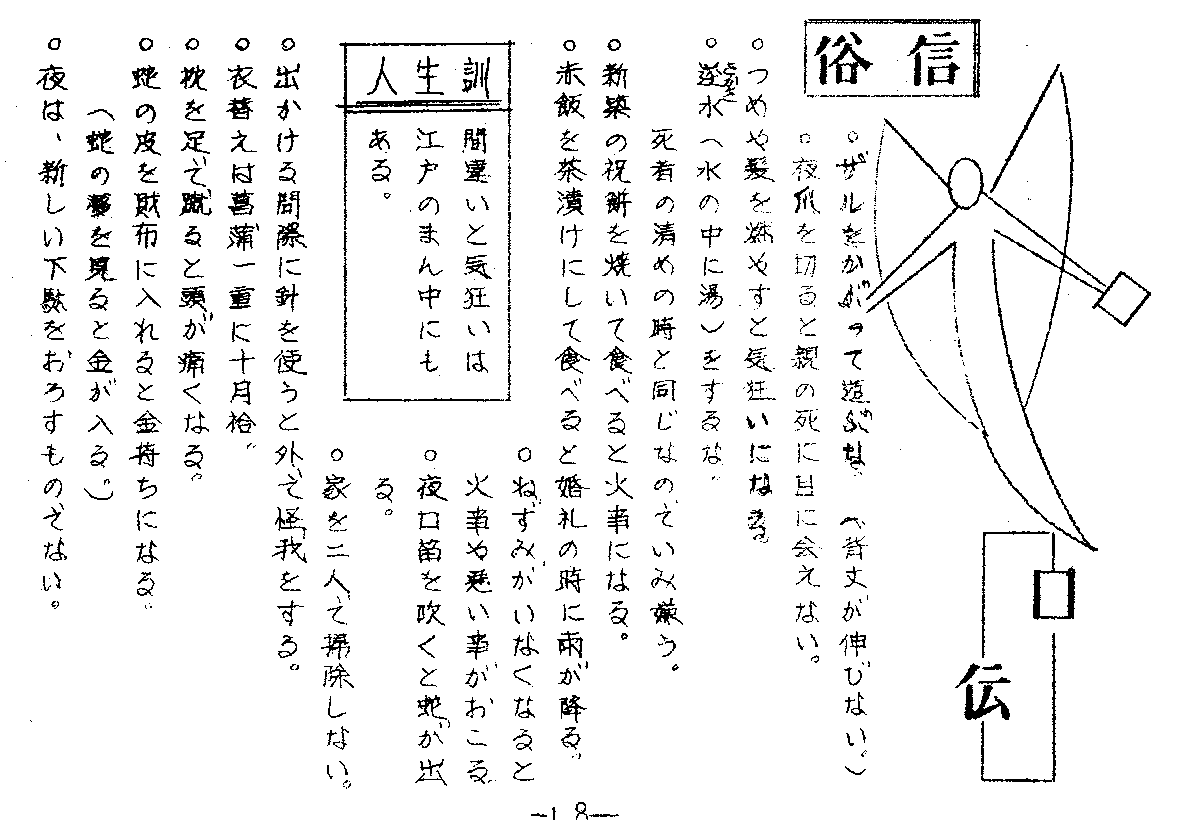 俗信
伝
○ザルをかぶって遊ぶな （背丈が伸びない。）
○夜爪を切ると親の死に目に会えない。
○つめや髪を燃やすと気狂いになる
○逆水（水の中に湯）をするな。
死者の清めの時と同じなのでいみ嫌う。
○新築の祝餅を焼いて食べると火事になる。
○赤飯を茶漬けにして食べると婚礼の時に雨が降る。
○ねずみがいなくなると
火事や悪い事がおこる
○夜口笛を吹くと蛇が出
る。
○家を二人で掃除しない。
人生訓
間違いと気狂いは
江戸のまん中にも
ある。
○出かける間際に針を使うと外で怪我をする。
○衣替えは菖蒲一重に十月袷。
○枕を足で蹴ると頭が痛くなる。
○蛇の皮を財布に入れると金持ちになる。
（蛇の夢を見ると金が入る。）
○夜は、新しい下駄をおろすものでない。
—18—